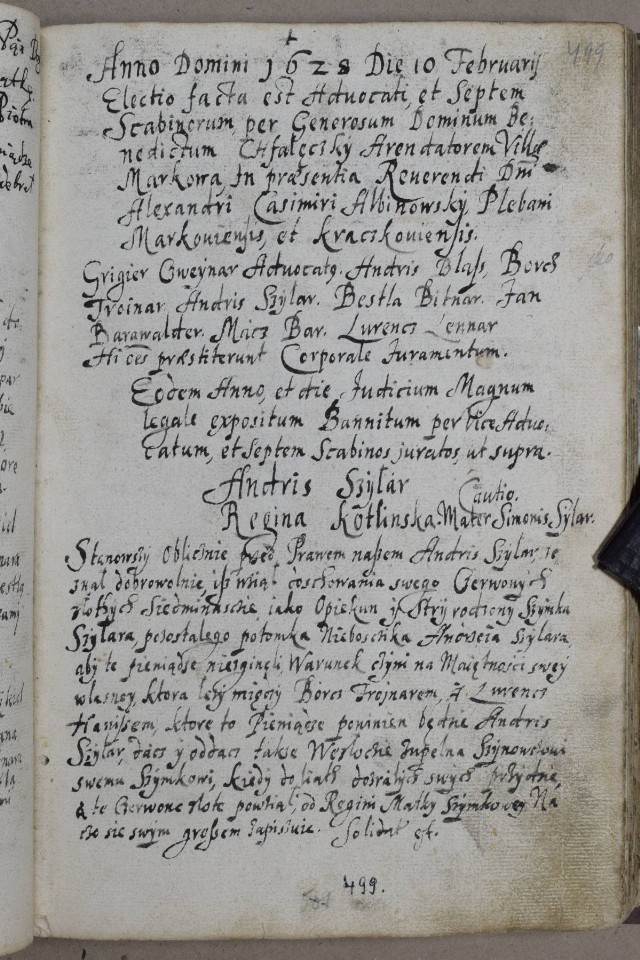 499
Anno Domini 1628 Die 10 Februarij
Electio facta est Advocati, et Septem
Scabinorum, per Generosum Dominum Be:
nedictum Chfałęcsky Arendatorem Villæ
Markowa, In præsentia Reverendi Dni
Alexandri Casimiri Albinowsky, Plebani
Markoviensis, et Kraczkoviensis.
Grigier Cweynar Advocatq. Andris Blass, Borch
Troinar, Andris Szylar. Bestla Bitnar. Jan
Barawalder. Mács Bar. Lurencz Lennar
Hi oes præstiterunt Corporale Iuramentum.
Eodem Anno, et die Iudicium Magnum
legale expositum Bannitum per Vice Advo:
catum, et Septem Scabinos juratos, ut supra.
Andris Szylar
Cautio.
Regina Kotlinska. Mater Simonis Sylar.
Stanowszy Oblicznie przed Prawem naszem Andris Szylar, ze
znał dobrowolnie, isz wział coschowania swego Czerwonych
złothych Siedminascie, iako Opiekun y Stryi rodzony Szymka
Szylara, pozostałego potomka Nieboscika Andrzeia Szylara,
aby te pieniądze niezginęli, Warunek czyni na Maiętnosci swey
własney, ktora lezy między Borcz Troynarem, a Lurencz
Hanissem, ktore to Pieniądze powinien będzie Andris
Szylar, dacz y oddacz takze zupelna Synowcowi
swemu Szymkowi, kiedy do liath swych przydzie,
a te Czerwone złote powział, od Regini Matky Szymkowey Na
czo sie swym grossem zapisuie. Solidat est.
499.